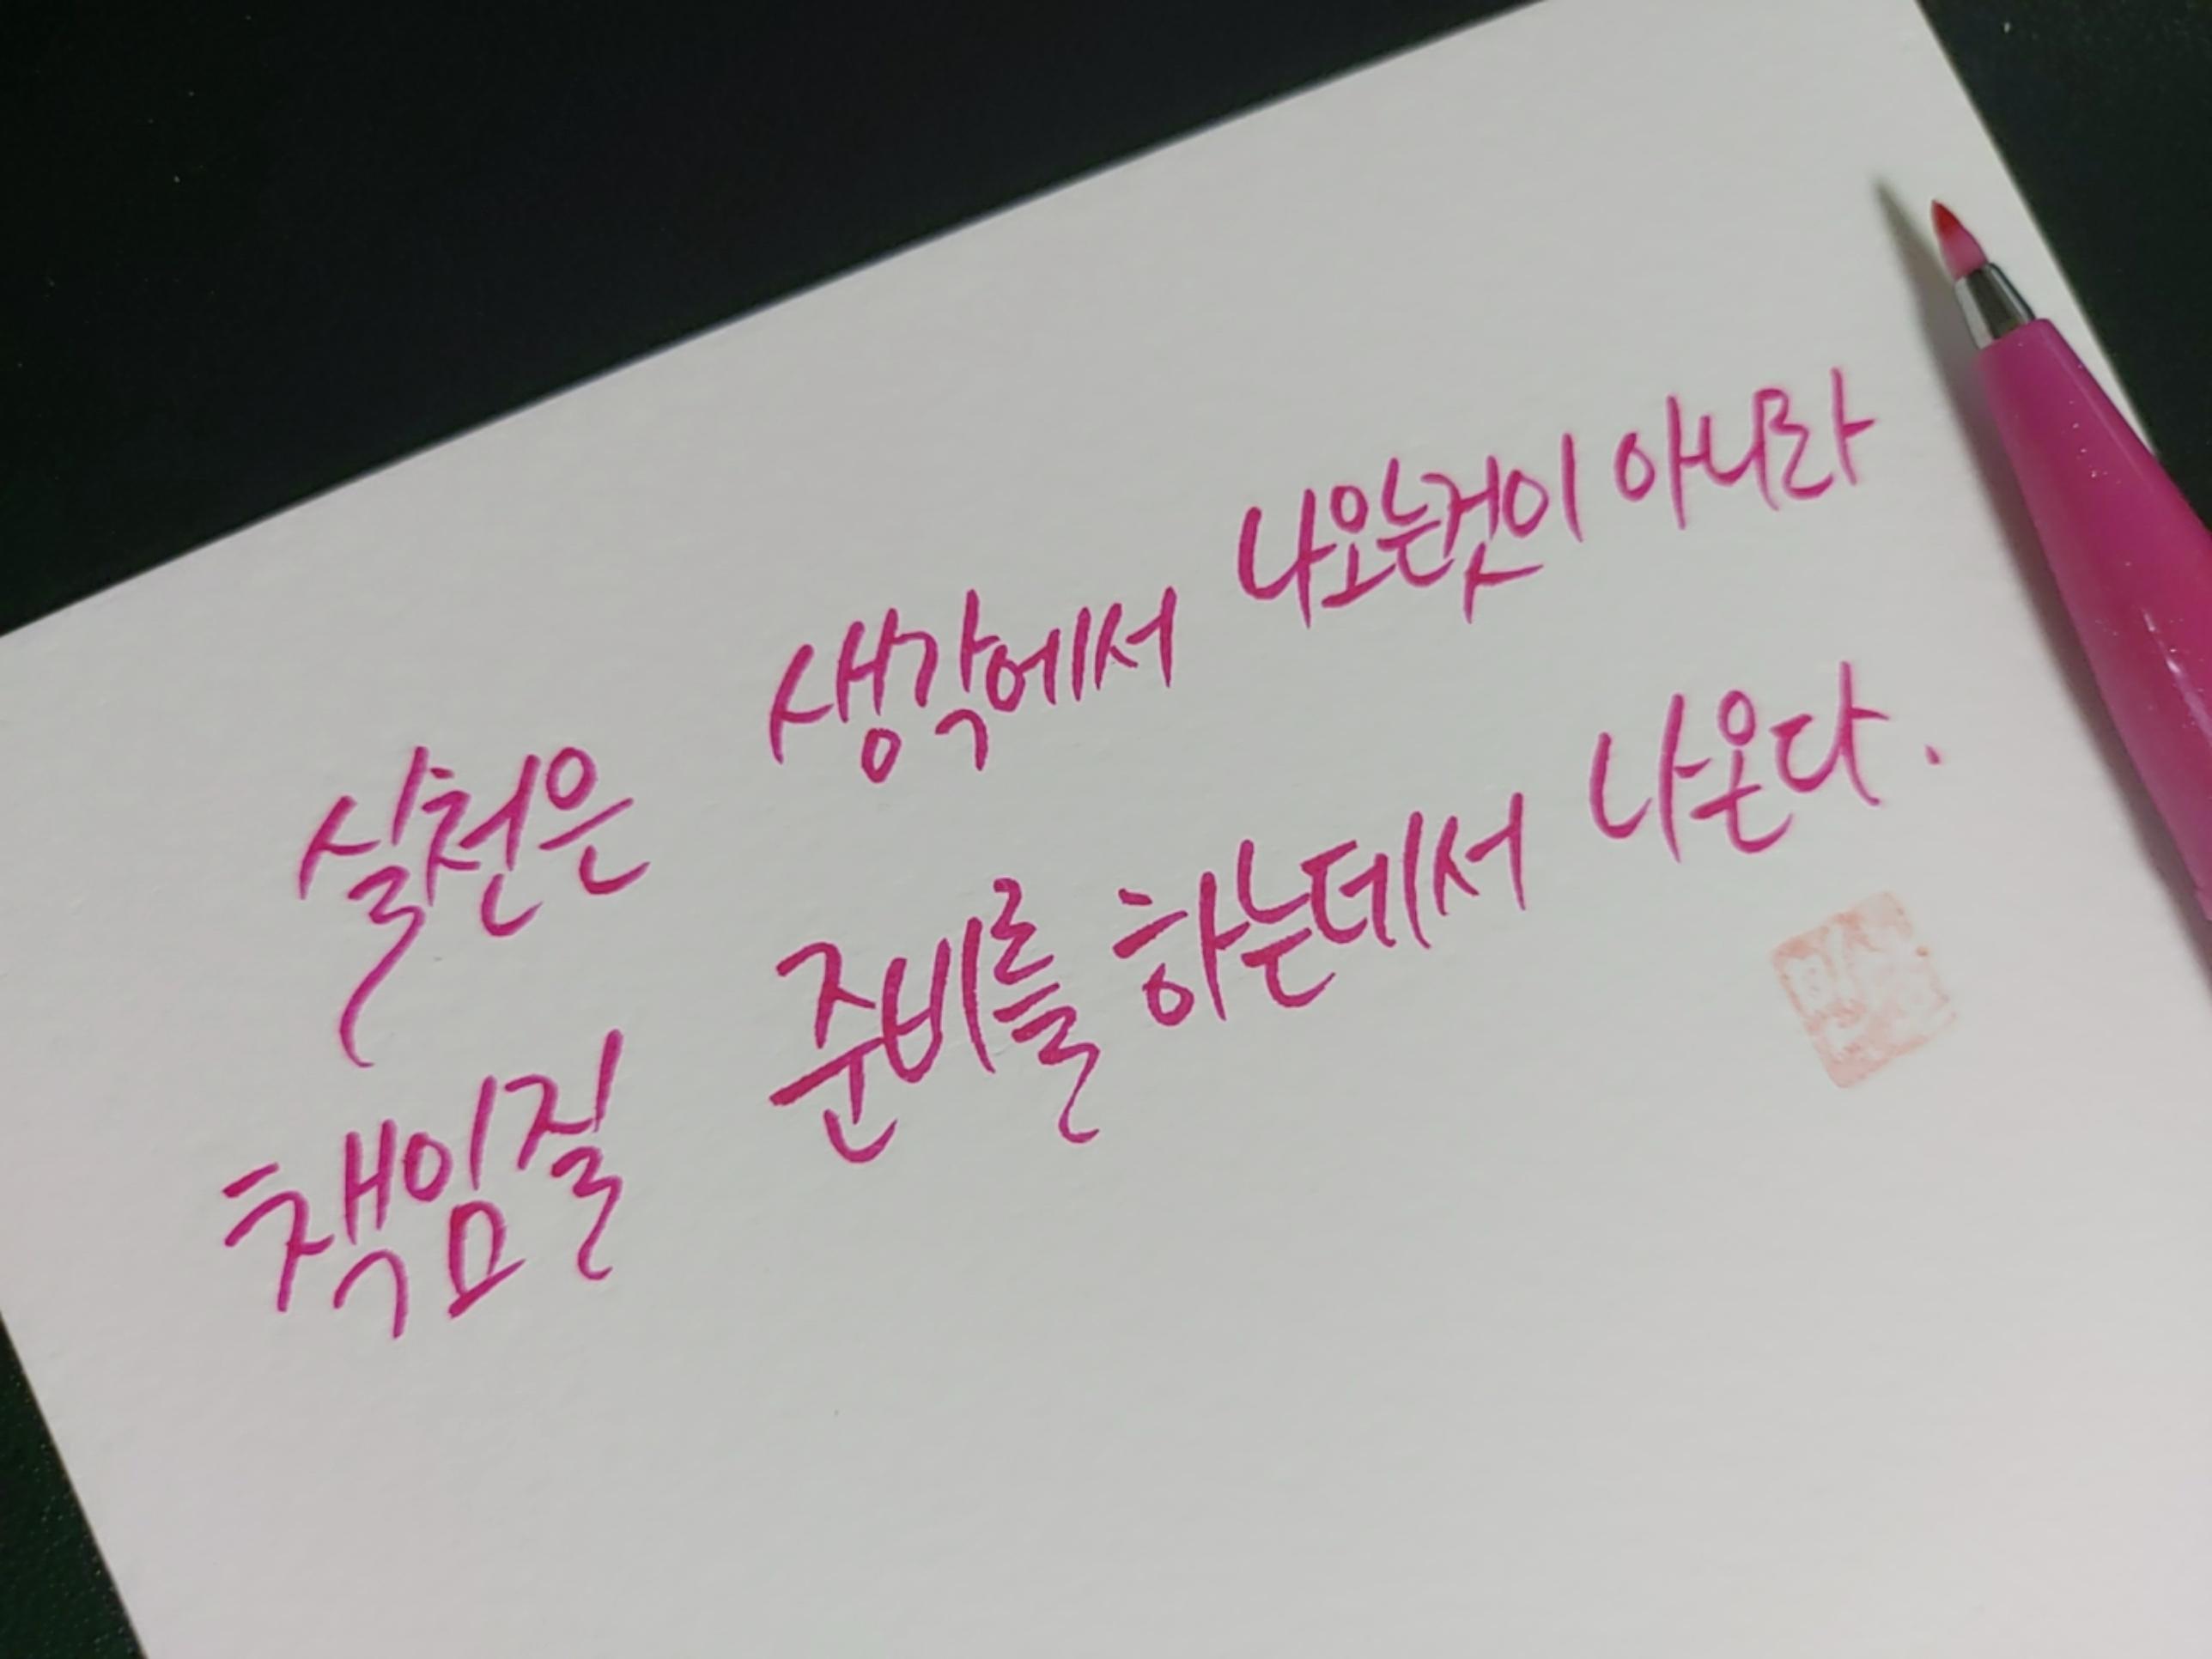 실천은 생각에서 나오는것이 아니라
책임질 준비를 하는데서 나온다.